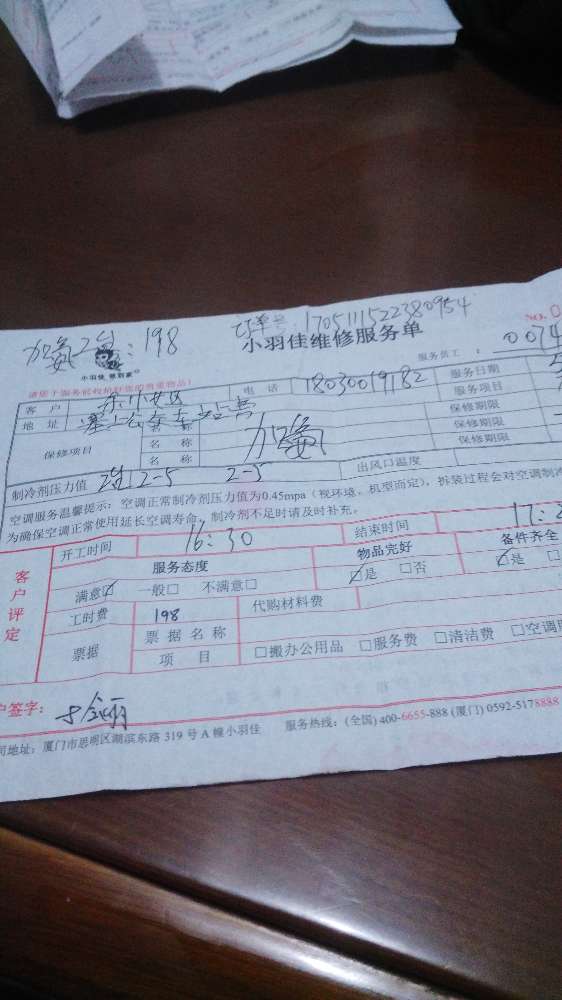 订单号:1705111522380954
加氨2台:198
小羽佳 微到家
小羽佳维修服务单
NO.0
请您于服务前收拾好您的贵重物品!
服务员工: 0074
客户 电话 18030019182 服务日期
地址 服务项目
保修项目 名称 加氨 保修期限
名称 保修期限
保修期限
制冷剂压力值 2-5 2-5 出风口温度
空调服务温馨提示:空调正常制冷剂压力值为0.45mpa(视环境、机型而定),拆装过程会对空调制冷
为确保空调正常使用延长空调寿命,制冷剂不足时请及时补充。
客户评定
开工时间 16:30 结束时间 17:
服务态度 物品完好 备件齐全
满意☑ 一般□ 不满意□ ☑是 □否 ☑是
工时费 198 代购材料费
票据 票据名称
项目 □搬办公用品 □服务费 □清洁费 □空调
户签字:
司地址:厦门市思明区湖滨东路 319 号 A 幢小羽佳 服务热线:(全国) 400-6655-888 (厦门) 0592-5178888